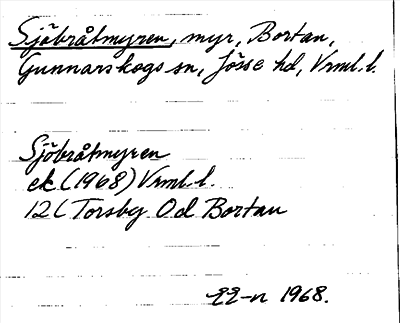 Sjöbråtmyren, myr, Bortan,
Gunnarskogs sn, Jösse hd, Vrml. l.
Sjöbråtmyren
ek. (1968) Vrml. l.
12C Torsby Od Bortan
1968.